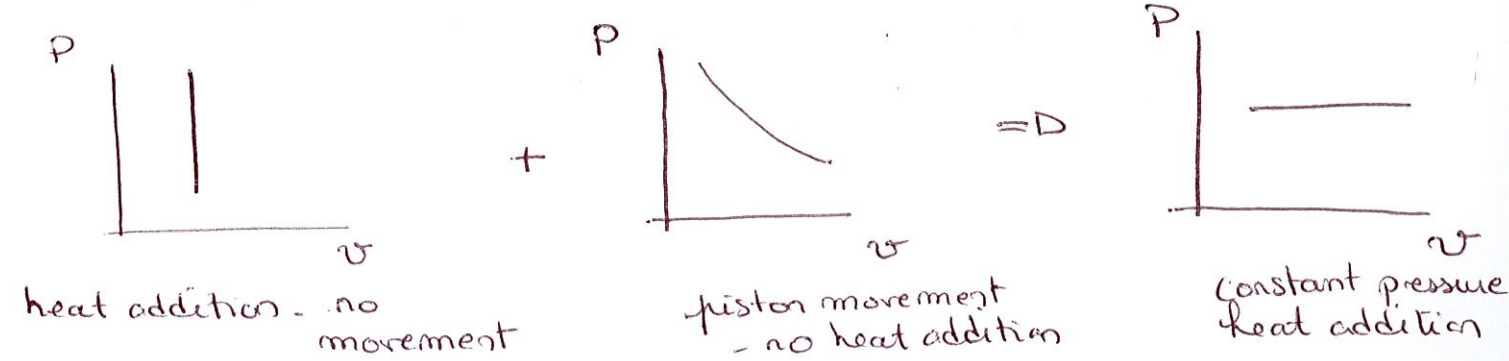 P
v
heat addition - no
movement
+
P
v
piston movement
- no heat addition
=D
P
v
constant pressure
heat addition